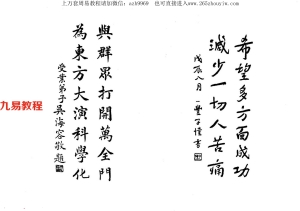 上万套周易教程请加微信：ach9969 也可直接进入www.265shouyi.com
希望多方面成功
減少一切人苦痛
戊辰八月
與群眾打開萬全門
為東方大演科學化
受業弟子吳海容敬題
九易教程